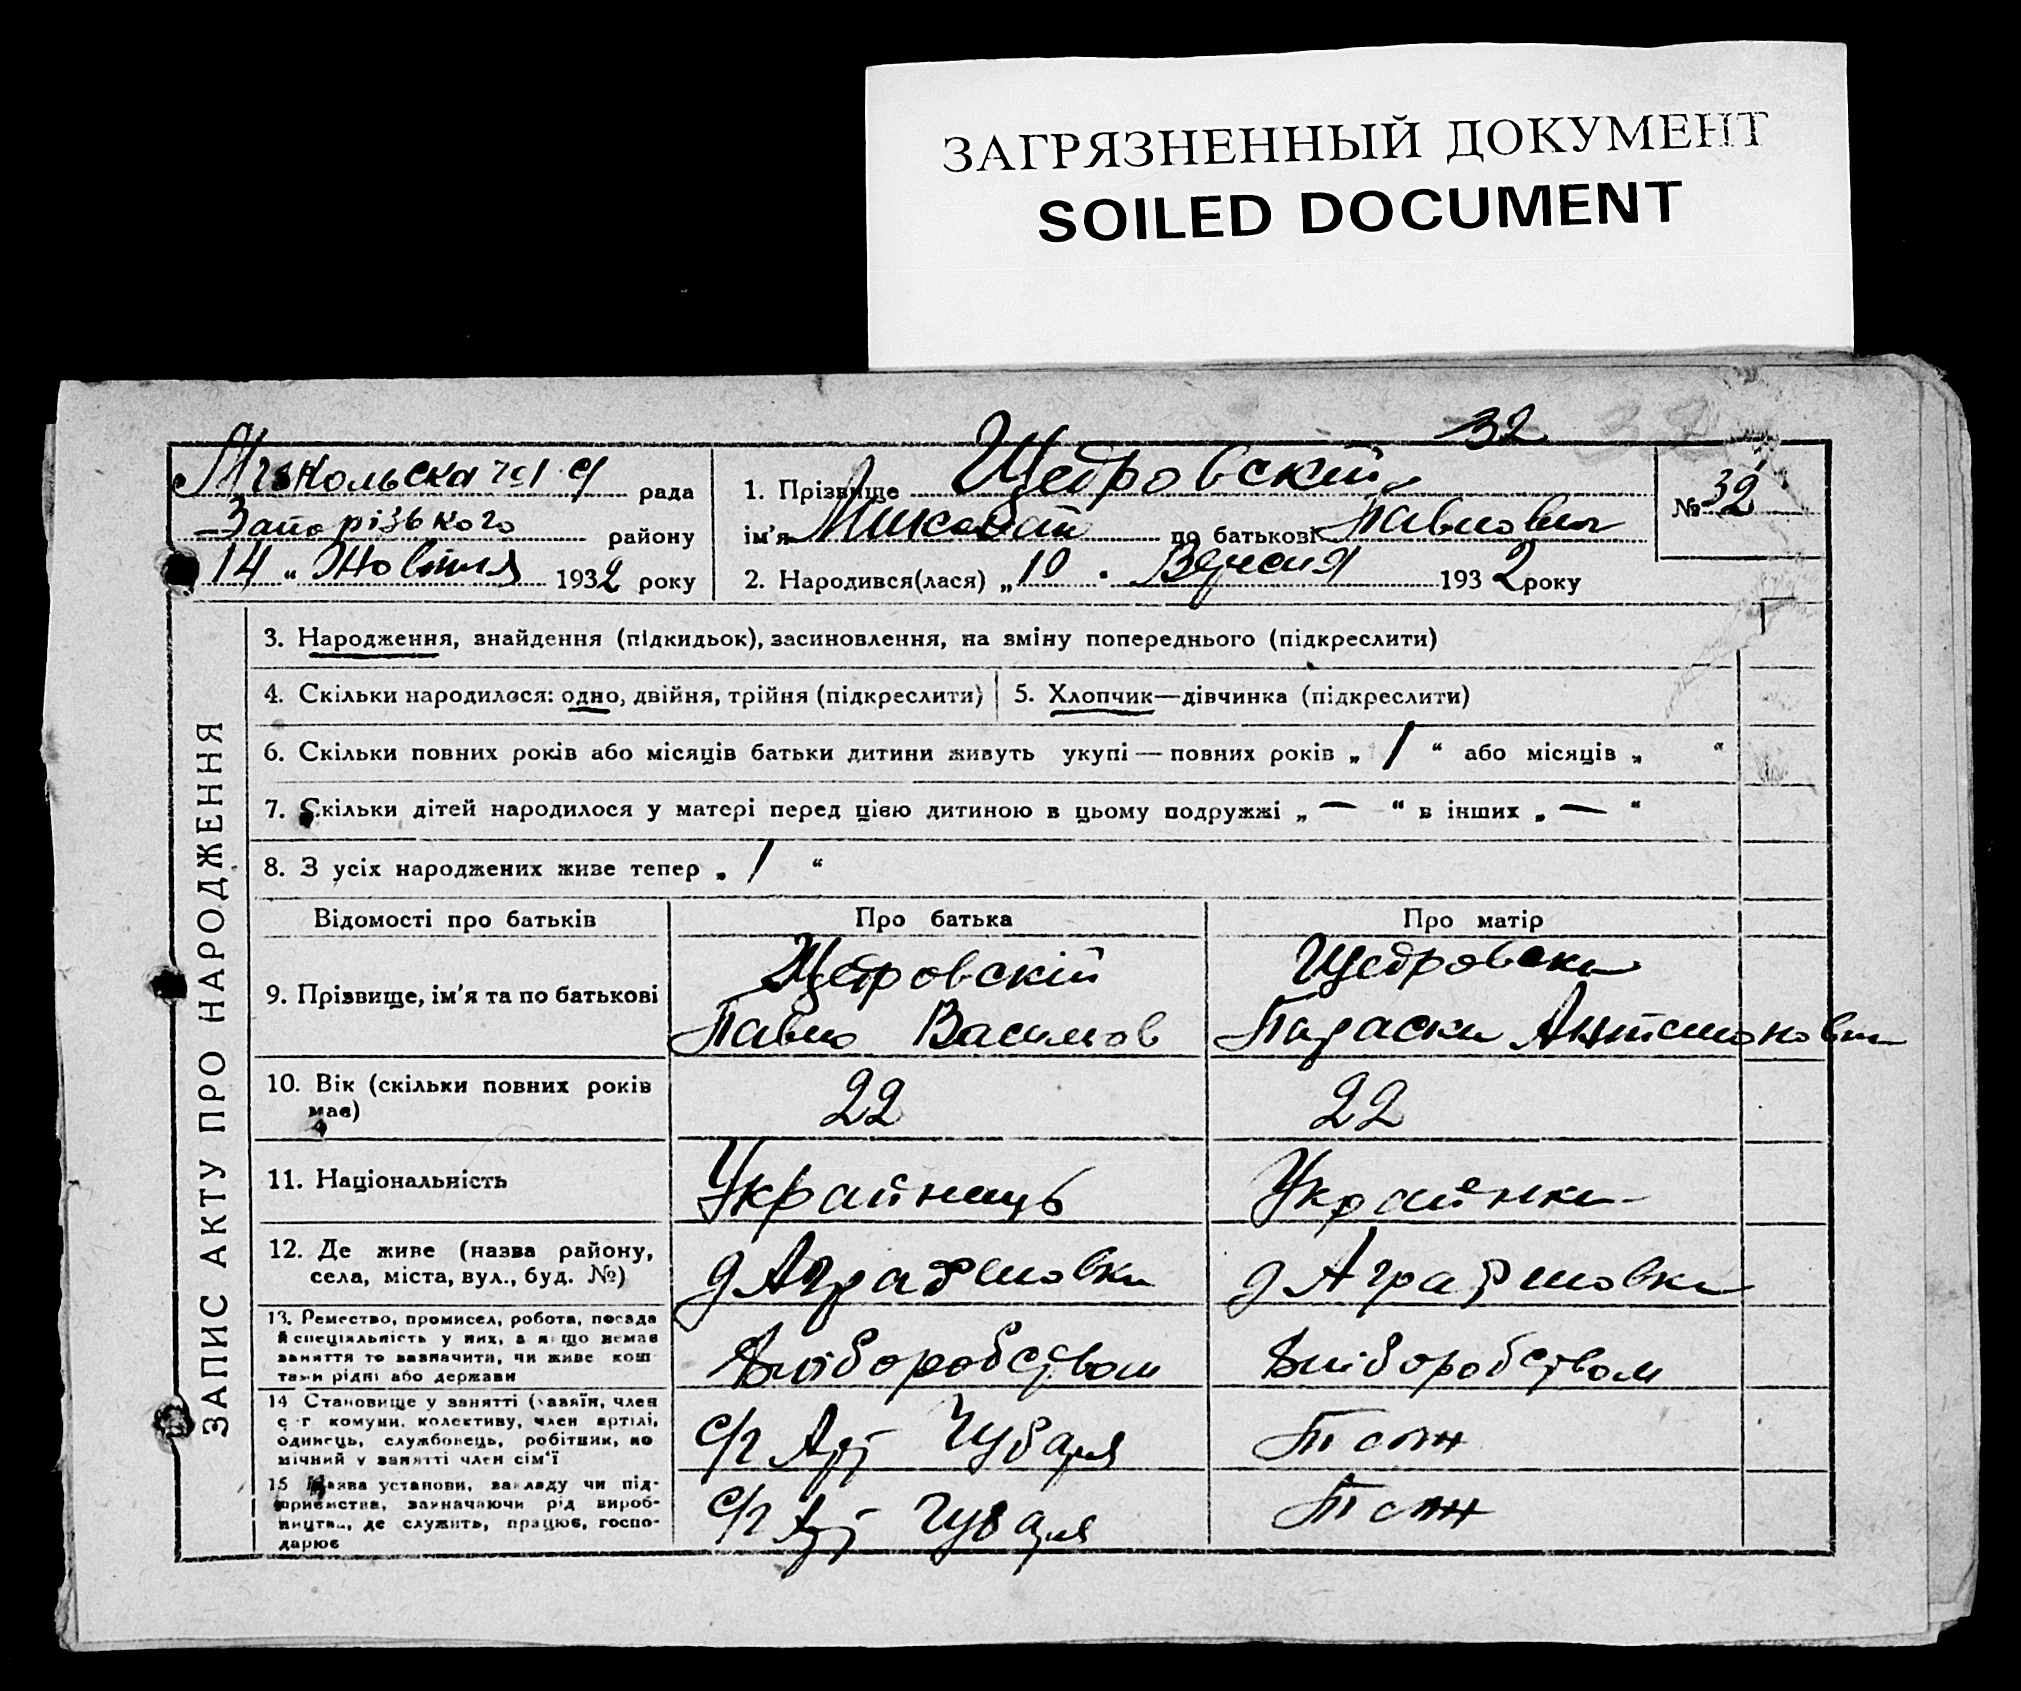 ЗАГРЯЗНЕННЫЙ ДОКУМЕНТ
SOILED DOCUMENT
32
Микольська рада
Запорізького району
14 „ Жовтня 1932 року
1. Прізвище Щедровский
ім'я Миколай по батькові Павлович
2. Народився(лася) „ 10 . Вересня 1932 року
№ 32
ЗАПИС АКТУ ПРО НАРОДЖЕННЯ
3. Народження, знайдення (підкидьок), засиновлення, на зміну попереднього (підкреслити)
4. Скільки народилося: одно, двійня, трійня (підкреслити)
5. Хлопчик—дівчинка (підкреслити)
6. Скільки повних років або місяців батьки дитини живуть укупі — повних років „ 1 “ або місяців „ “
7. Скільки дітей народилося у матері перед цією дитиною в цьому подружжі „ — “ в інших „ — “
8. З усіх народжених живе тепер „ 1 “
Відомості про батьків Про батька Про матір
9. Прізвище, ім'я та по батькові
Щедровскій
Павло Васильов
Щедровска
Параска Антоновна
10. Вік (скільки повних років
має)
22
22
11. Національність
Украйнець
Украйнка
12. Де живе (назва району,
села, міста, вул., буд. №)
13. Ремество, промисел, робота, посада
й спеціяльність у них, а якщо немає
заняття то вазначити, чи живе кош
тами рідні або держави
Хліборобством
Хліборобством
14 Становище у занятті (хазяїн, член
с-г комуни, колективу, член артілі,
одинець, службовець, робітник, по
мічний у занятті член сім'ї
с/г Арт Чубаря
Тож
15 Назва установи, закладу чи під-
приємства, зазначаючи рід вироб-
ництва, де служить, працює, госпо-
дарює
с/г Арт Чубаря
Тож